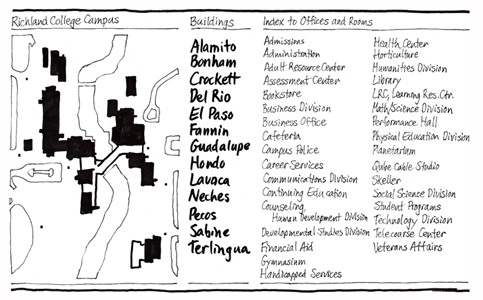 Richland College Campus
Buildings
Alamito
Bonham
Crockett
Del Rio
El Paso
Fannin
Guadalupe
Hondo
Lavaca
Neches
Pecos
Sabine
Terlingua
Index to Offices and Rooms
Admissions
Administration
Adult Resource Center
Assessment Center
Bookstore
Business Division
Business Office
Cafeteria
Campus Police
Career Services
Communications Division
Continuing Education
Counseling,
Human Development Division
Developmental Studies Division
Financial Aid
Gymnasium
Handicapped Services
Health Center
Horticulture
Humanities Division
Library
LRC, Learning Res. Ctr.
Math/Science Division
Performance Hall
Physical Education Division
Planetarium
Qube Cable Studio
Skeller
Social Science Division
Student Programs
Technology Division
Telecourse Center
Veterans Affairs